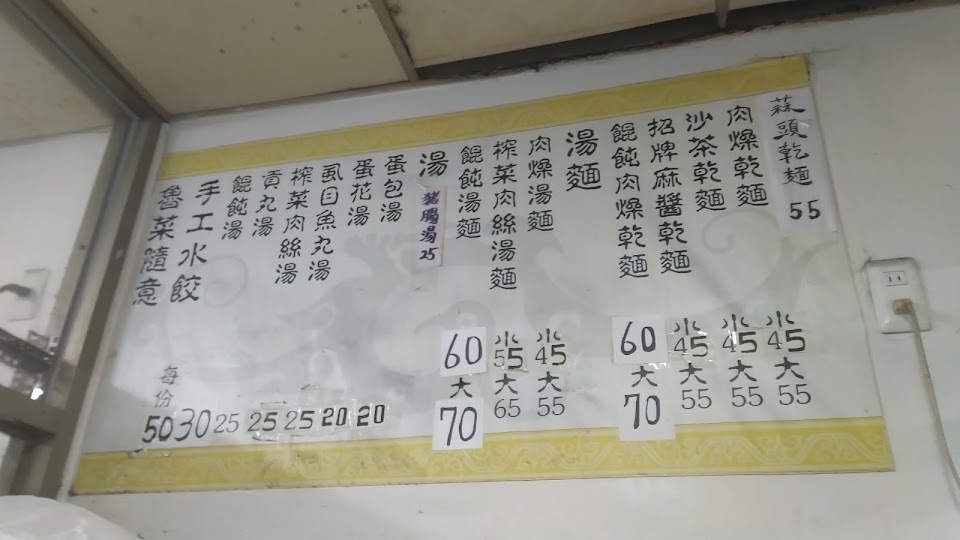 蒜頭乾麵 55
肉燥乾麵 小45 大55
沙茶乾麵 小45 大55
招牌麻醬乾麵 小45 大55
餛飩肉燥乾麵 60 大70
湯麵
肉燥湯麵 小45 大55
榨菜肉絲湯麵 小55 大65
餛飩湯麵 60 大70
湯
豬腸湯25
蛋包湯 20
蛋花湯 20
虱目魚丸湯 25
榨菜肉絲湯 25
貢丸湯 25
餛飩湯 30
手工水餃 每份 50
魯菜隨意